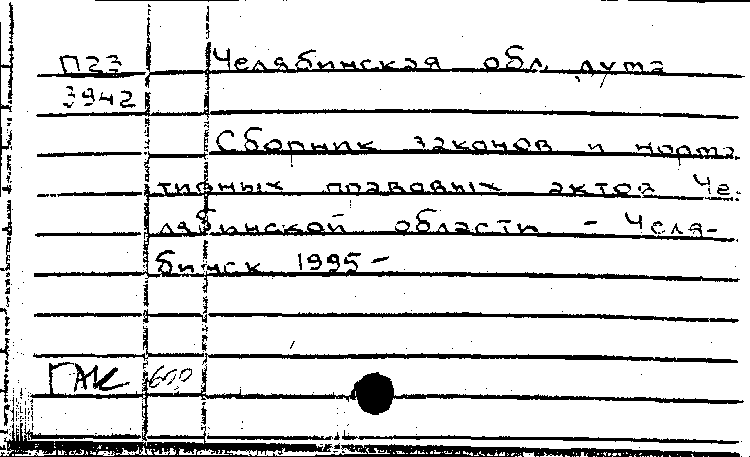 П23 Челябинская обл. дума
3942
Сборник законов и норма
тивных правовых актов Че-
лябинской области - Челя-
бинск 1995 -
ГАК